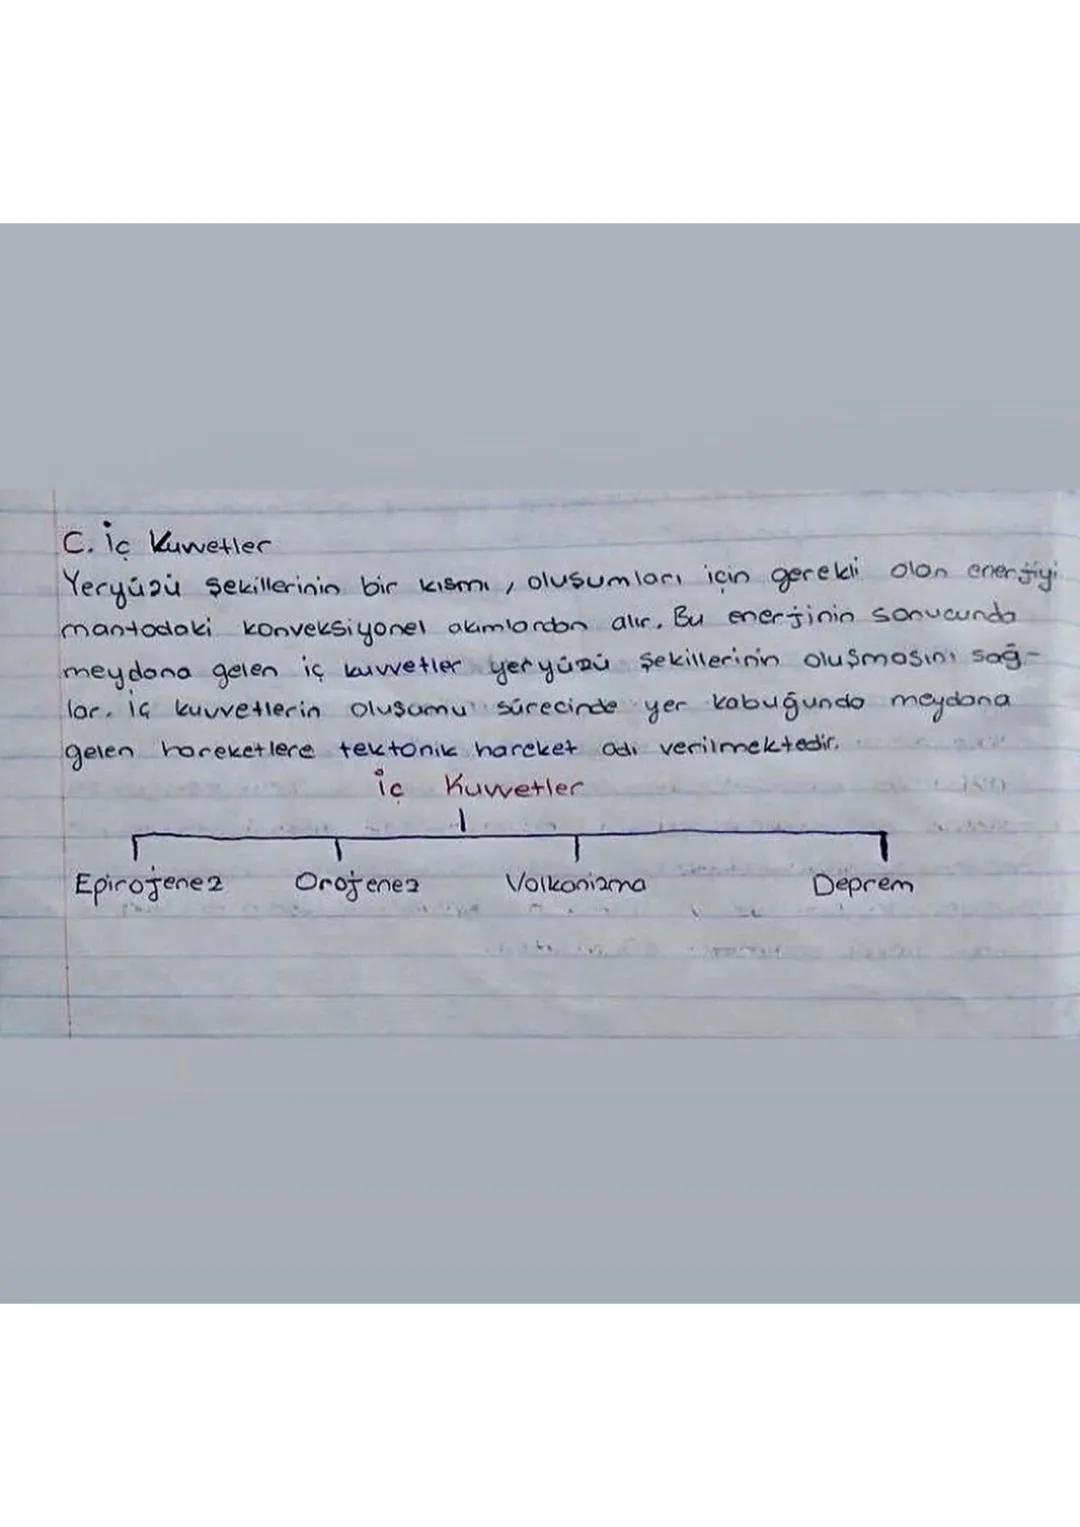 C. İç Kuvvetler
Yeryüzü şekillerinin bir kısmı, oluşumları için gerekli olan enerjiyi
mantodaki konveksiyonel akımlardan alır. Bu enerjinin sonucunda
meydana gelen iç kuvvetler yeryüzü şekillerinin oluşmasını sağ-
lar. İç kuvvetlerin oluşumu sürecinde yer kabuğunda meydana
gelen hareketlere tektonik hareket adı verilmektedir.
İç Kuvvetler
Epirojenez Orojenez Volkanizma Deprem